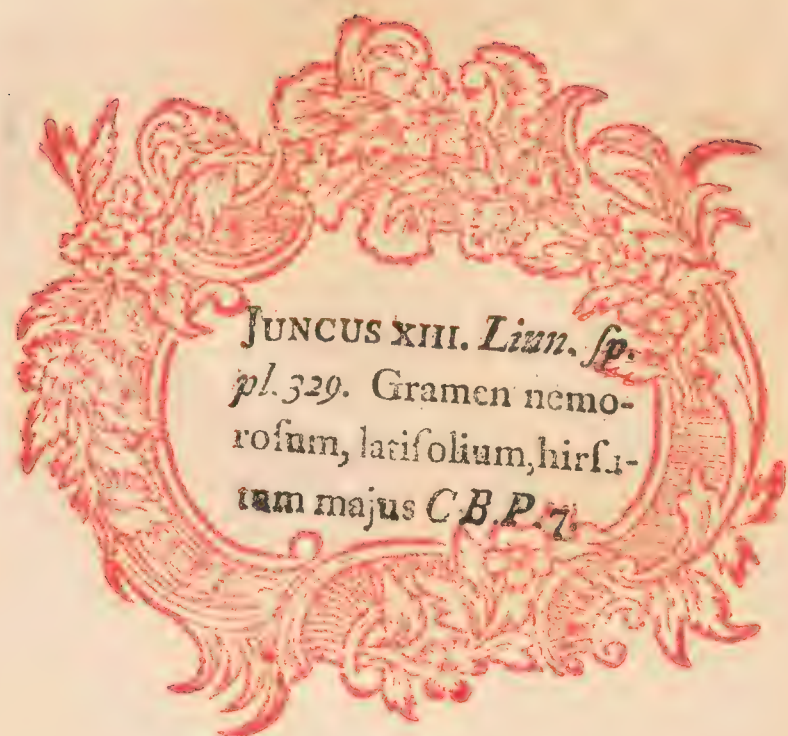 JUNCUS XIII. Linn. ſp.
pl. 329. Gramen nemo-
roſum, latifolium, hirſu-
tum majus C.B.P. 7.